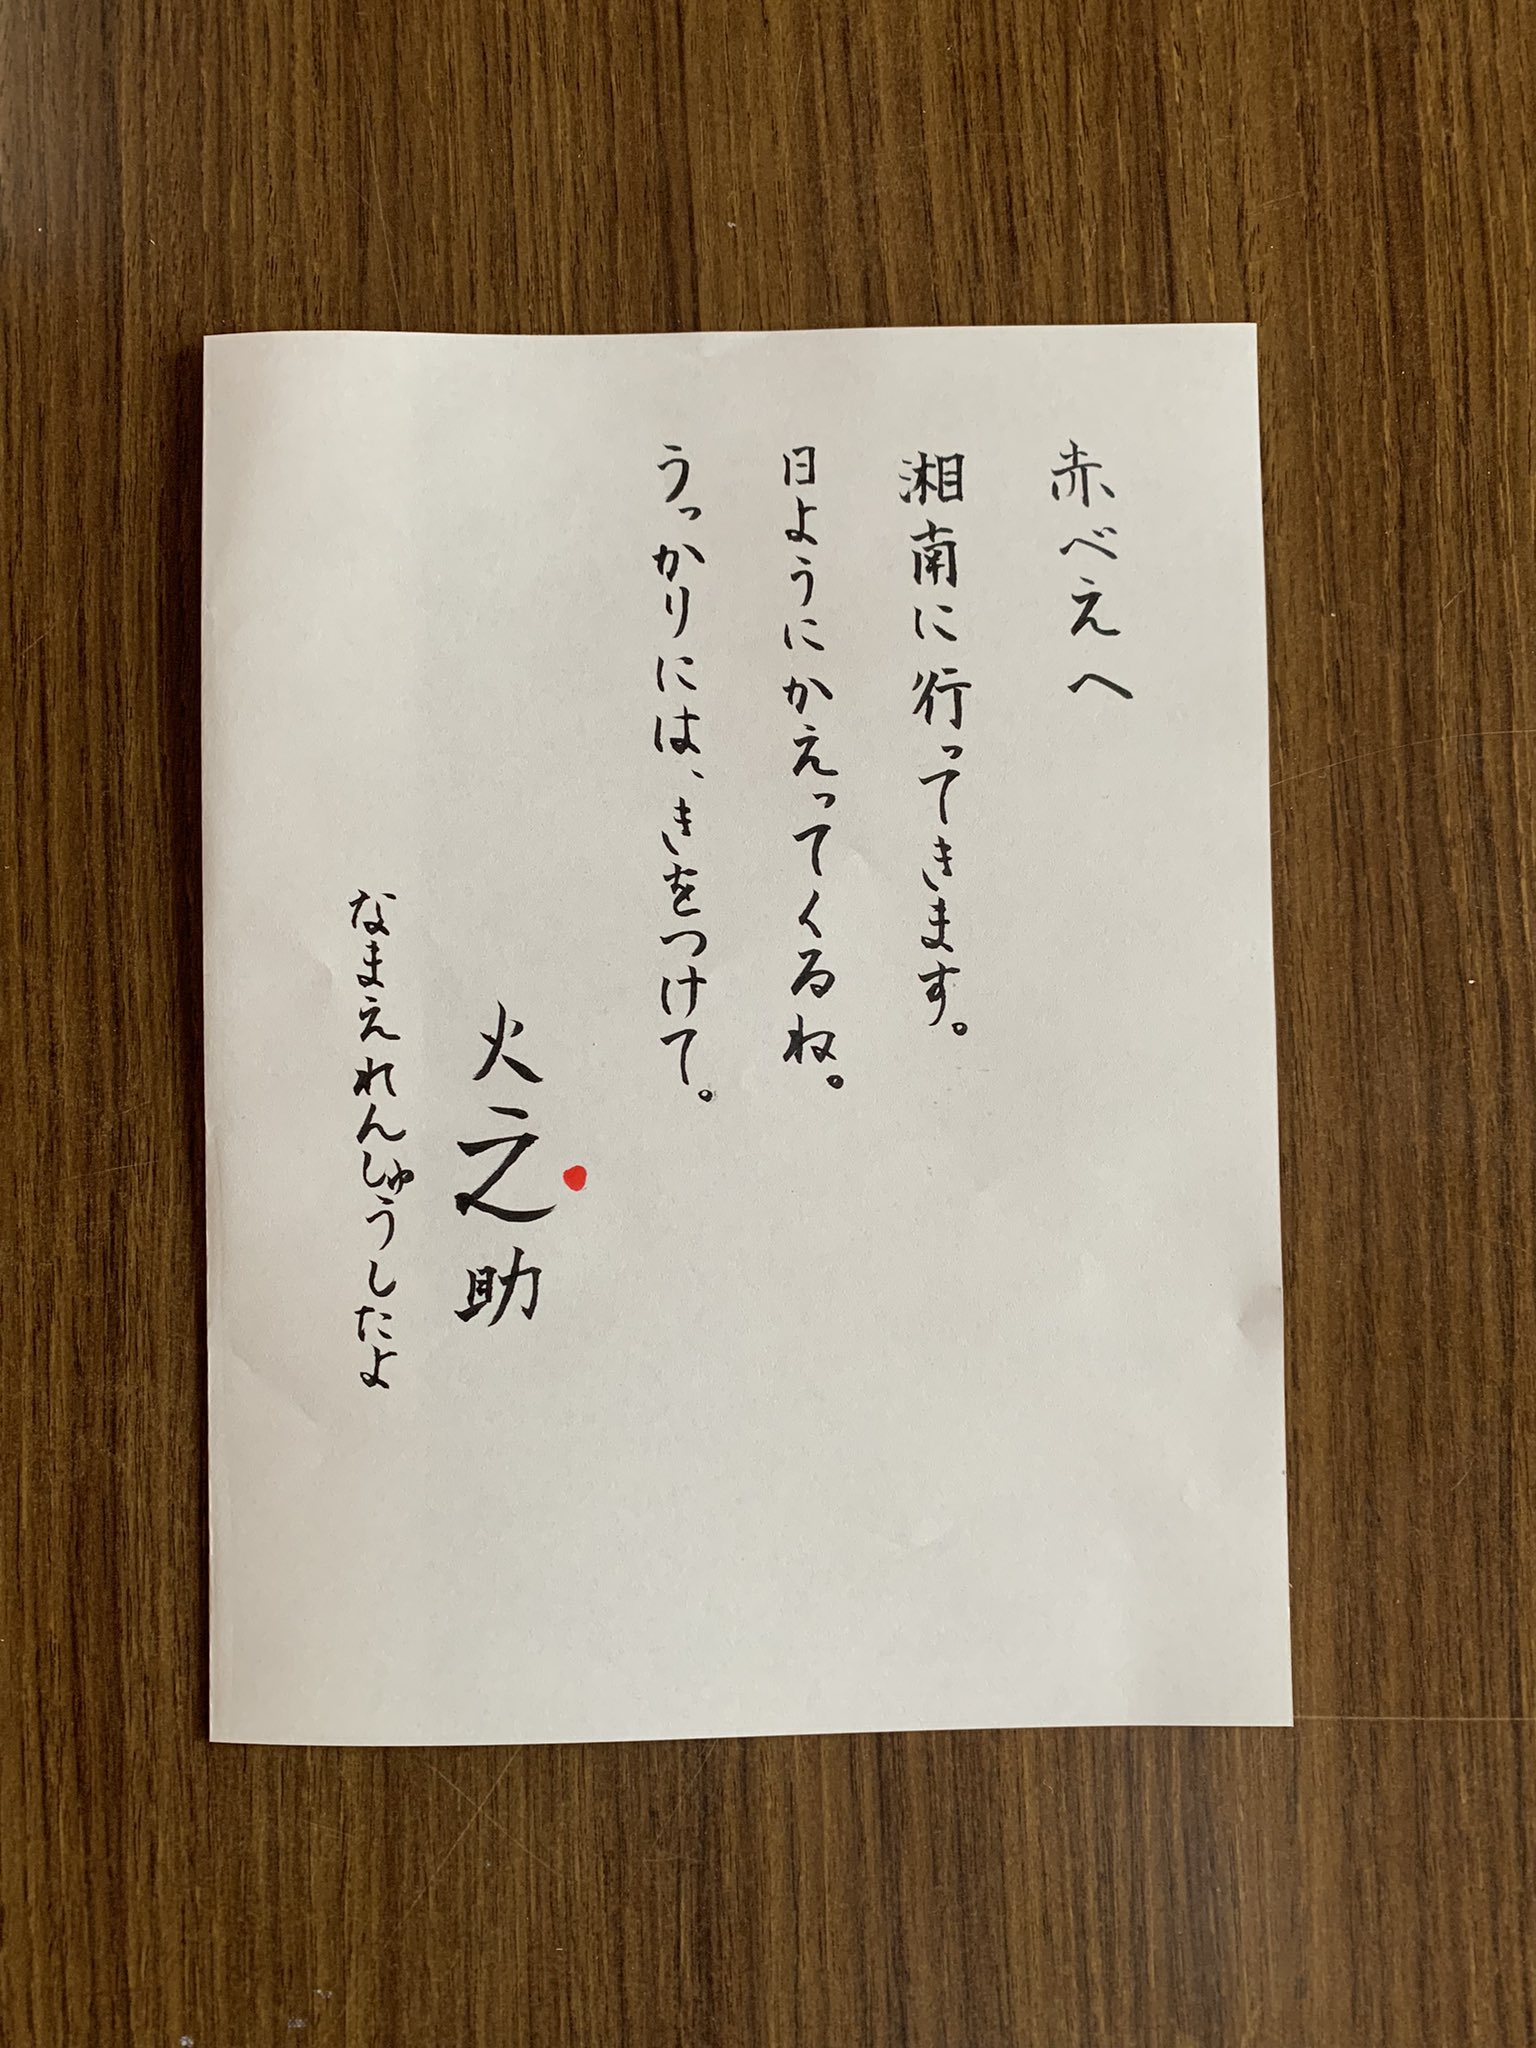 赤べえへ
湘南に行ってきます。
日ようにかえってくるね。
うっかりには、きをつけて。
火之助
なまえれんしゅうしたよ